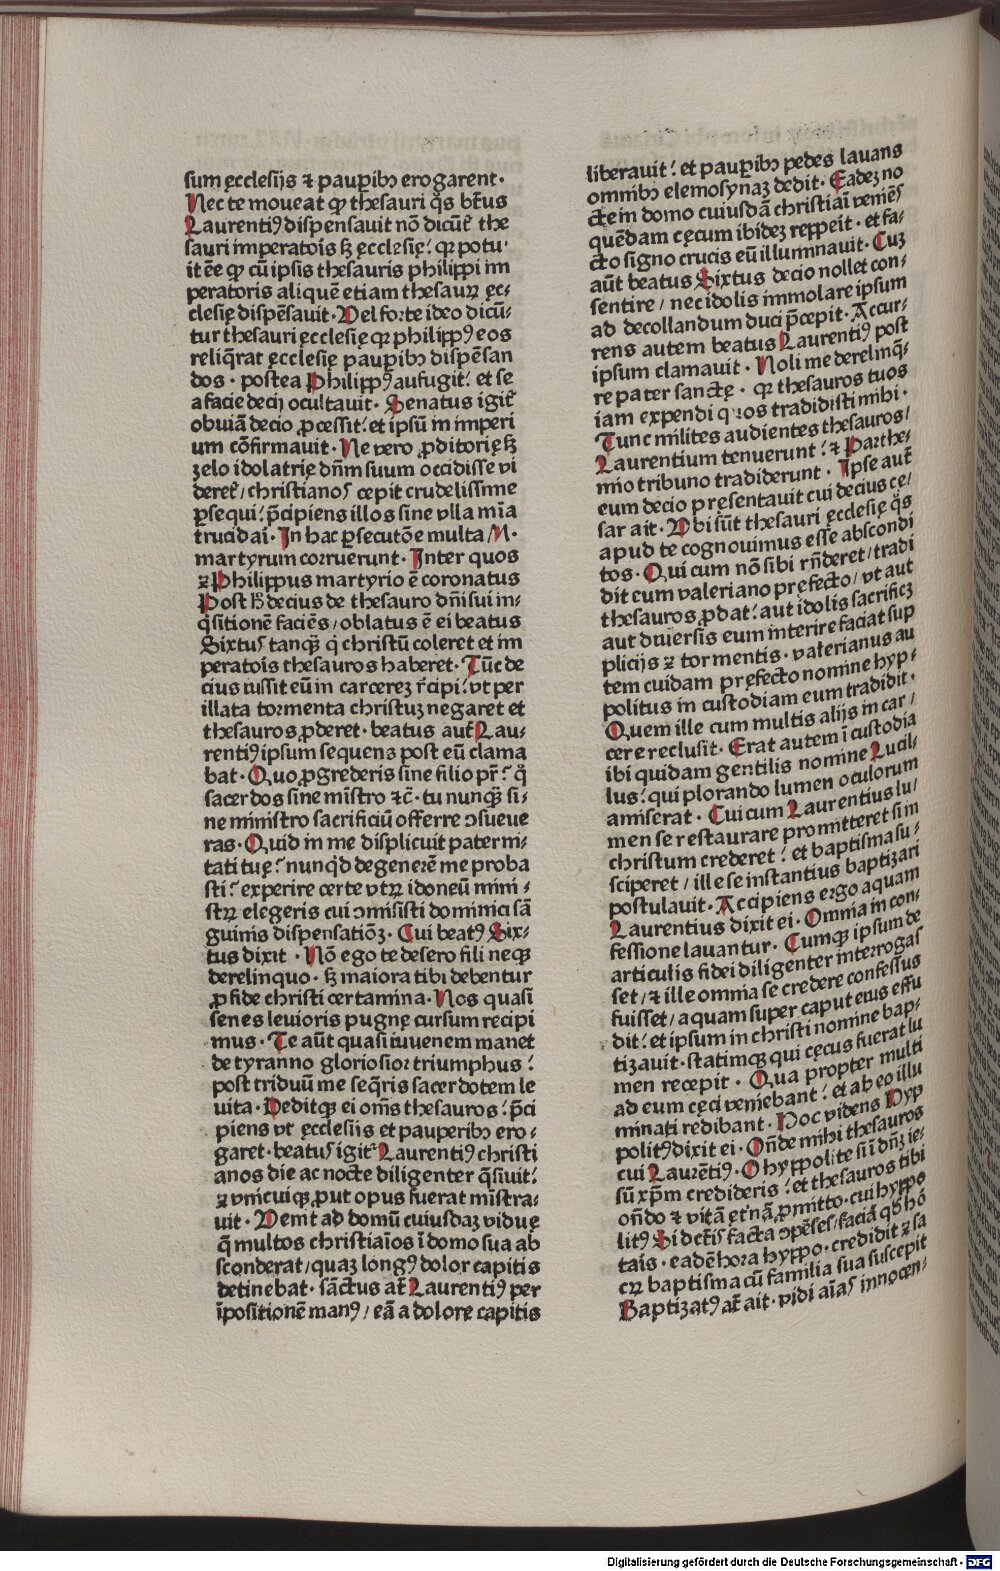 sum ęcclesijs ⁊ paup̲ibꝫ erogarent·
Nec te moueat qp̄ thesauri q̊s bt̄us
Laurentiꝰ dispensauit nō dicūt̄ the
sauri imperatoīs sꝫ ęcclesię: qꝛ potu·
it ēe qp̄ cū ipsis thesauris philippi im
peratoris aliquē etiam thesauꝝ ęc⸗
clesię dispēsauit· Vel forte ideo dicū⸗
tur thesauri ęcclesię qꝛ philippꝰ eos
reliq̄rat ęcclesię paup̲ibꝫ dispēsan
dos· postea Philippꝰ aufugit: et se
a facie decij ocultauit· Senatus igit̄
obuiā decio ꝓcessit: et ipsū in imperi
um cōfirmauit· Ne vero ꝓditorię sꝫ
zelo idolatrię dn̄m suum occidisse vi
deret̄ / christianos cepit crudelissime
p̲sequi: p̄cipiens illos sine vlla mīa
trucidāi· In hac p̲secutōe multa M·
martyrum corruerunt· Inter quos
⁊ Philippus martyrio ē coronatus
Post hͦ decius de thesauro dn̄i sui in⸗
q̊sitionē faciēs / oblatus ē ei beatus
Sixtus tanqꝫ q̊ christū coleret et im
peratoīs thesauros haberet· Tūc de
cius iussit eū in carcerez r̄cipi: vt per
illata tormenta christuz negaret et
thesauros ꝓderet· beatus aut̄ Lau⸗
rentiꝰ ipsum sequens post eū clama
bat· Quo ꝓgrederis sine filio pr̄: q̊
sacerdos sine mīstro ⁊c̄· tu nunqꝫ si⸗
ne ministro sacrificiū offerre ↄsueue
ras· Quid in me displicuit paterni⸗
tati tuę: nunqͥd degenerē me proba
sti: experire certe vtꝝ idoneū mini⸗
stꝝ elegeris cui ↄmisisti dominici sā
guinis dispensatiōꝫ· Cui beatꝰ Six⸗
tus dixit· Nō ego te desero fili neqꝫ
derelinquo· sꝫ maiora tibi debentur
ꝓ fide christi certamina· Nos quasi
senes leuioris pugnę cursum recipi
mus· Te aūt quasi iuuenem manet
de tyranno gloriosior triumphus:
post triduū me seq̄ris sacerdotem le
uita· Deditqꝫ ei om̄s thesauros: p̄ci
piens vt ęcclesijs et pauperibꝫ ero⸗
garet· beatus igit̄ Laurentiꝰ christi
anos die ac nocte diligenter q̄siuit:
⁊ vnicuiqꝫ ꝓut opus fuerat mīstra⸗
uit· Venit ad domū cuiusdaꝫ viduę
q̄ multos christiaīos ī domo sua ab
sconderat / quaꝫ longꝰ dolor capitis
detinebat· sāctus at̄ Laurentiꝰ per
īpositionē manꝰ / eā a dolore capitis
liberauit: et paup̲ibꝫ pedes lauans
omnibꝫ elemosynaꝫ dedit· Eadeꝫ no
cte in domo cuiusdā christiāi veniēs
quēdam cęcum ibideꝫ rep̲peit· et fa⸗
cto signo crucis eū illuminauit· Cuꝫ
aūt beatus Sixtus decio nollet con⸗
sentire / nec idolis immolare ipsum
ad decollandum duci p̄cepit· Accur⸗
rens autem beatus Laurentiꝰ post
ipsum clamauit· Noli me derelinq̄⸗
re pater sanctę· qꝛ thesauros tuos
iam expendi quos tradidisti mihi·
Tunc milites audientes thesauros /
Laurentium tenuerunt: ⁊ Parthe⸗
mio tribuno tradiderunt· Ipse aut̄
eum decio presentauit cui decius cę⸗
sar ait· Vbi sūt thesauri ęcclesię q̊s
apud te cognouimus esse abscondi
tos· Qui cum nō sibi rn̄deret / tradi
dit eum valeriano pręfecto / vt aut
thesauros ꝓdat: aut idolis sacrificꝫ
aut diuersis eum interire faciat sup
plicijs ⁊ tormentis· valerianus au
tem cuidam pręfecto nomine hyp⸗
politus in custodiam eum tradidit·
Quem ille cum multis alijs in car /
cere reclusit· Erat autem ī custodia
ibi quidam gentilis nomine Lucil⸗
lus: qui plorando lumen oculorum
amiserat· Cui cum Laurentius lu /
men se restaurare promitteret si in
christum crederet: et baptisma su⸗
sciperet / ille se instantius baptizari
postulauit· Accipiens ergo aquam
Laurentius dixit ei· Omnia in con⸗
fessione lauantur· Cumqꝫ ipsum de
articulis fidei diligenter interrogas
set / ⁊ ille omnia se credere confessus
fuisset / aquam super caput eius effu
dit: et ipsum in christi nomine bap⸗
tizauit· statimqꝫ qui cęcus fuerat lu
men recepit· Qua propter multi
ad eum cęci veniebant: et ab eo illu
minati redibant· Hoc videns Hyp
politꝰ dixit ei· On̄de mihi thesauros
cui Laurētiꝰ· O hyppolite si ī dn̄ꝫ ie⸗
sū xp̄m credideris: et thesauros tibi
on̄do ⁊ vitā ęt̄nā ꝓmitto· cui hyppo
litꝰ Si dc̄tis facta ↄpēses / faciā qd̄ hō
taīs· eadē hora hyppo· credidit ⁊ sa
cꝝ baptisma cū familia sua suscepit
Baptizatꝰ at̄ ait· vidi aīas innocen⸗
Digitalisierung gefördert durch die Deutsche Forschungsgemeinschaft · DFG